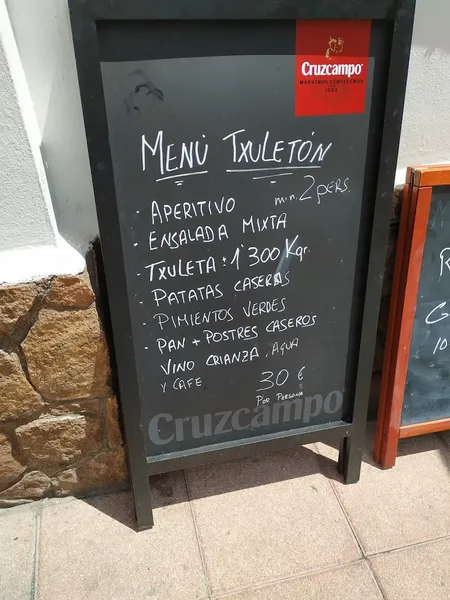 Cruzcampo
MAESTROS CERVECEROS
1904
MENÚ TXULETÓN
min. 2 PERS.
· APERITIVO
· ENSALADA MIXTA
· TXULETA: 1'300 Kgr.
· PATATAS CASERAS
· PIMIENTOS VERDES
· PAN + POSTRES CASEROS
VINO CRIANZA, AGUA
Y CAFE
30 €
POR PERSONA
Cruzcampo